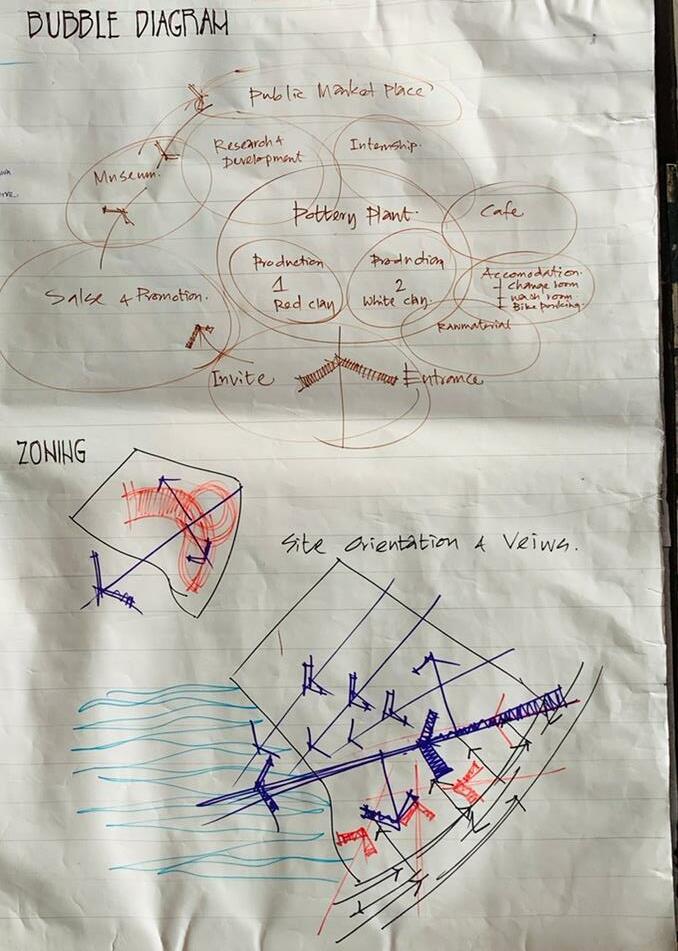 BUBBLE DIAGRAM
Public Market Place
Research &
Development
Internship.
Museum.
Pottery Plant.
Cafe
Production
1
Red clay
Production
2
White clay.
Accomodation.
change room
wash room
Bike parking.
Salse & Promotion.
Rawmaterial
Invite
Entrance
ZONING
Site orientation & Veiws.